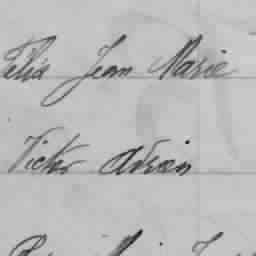 Félix Jean Marie
Victor Adrien